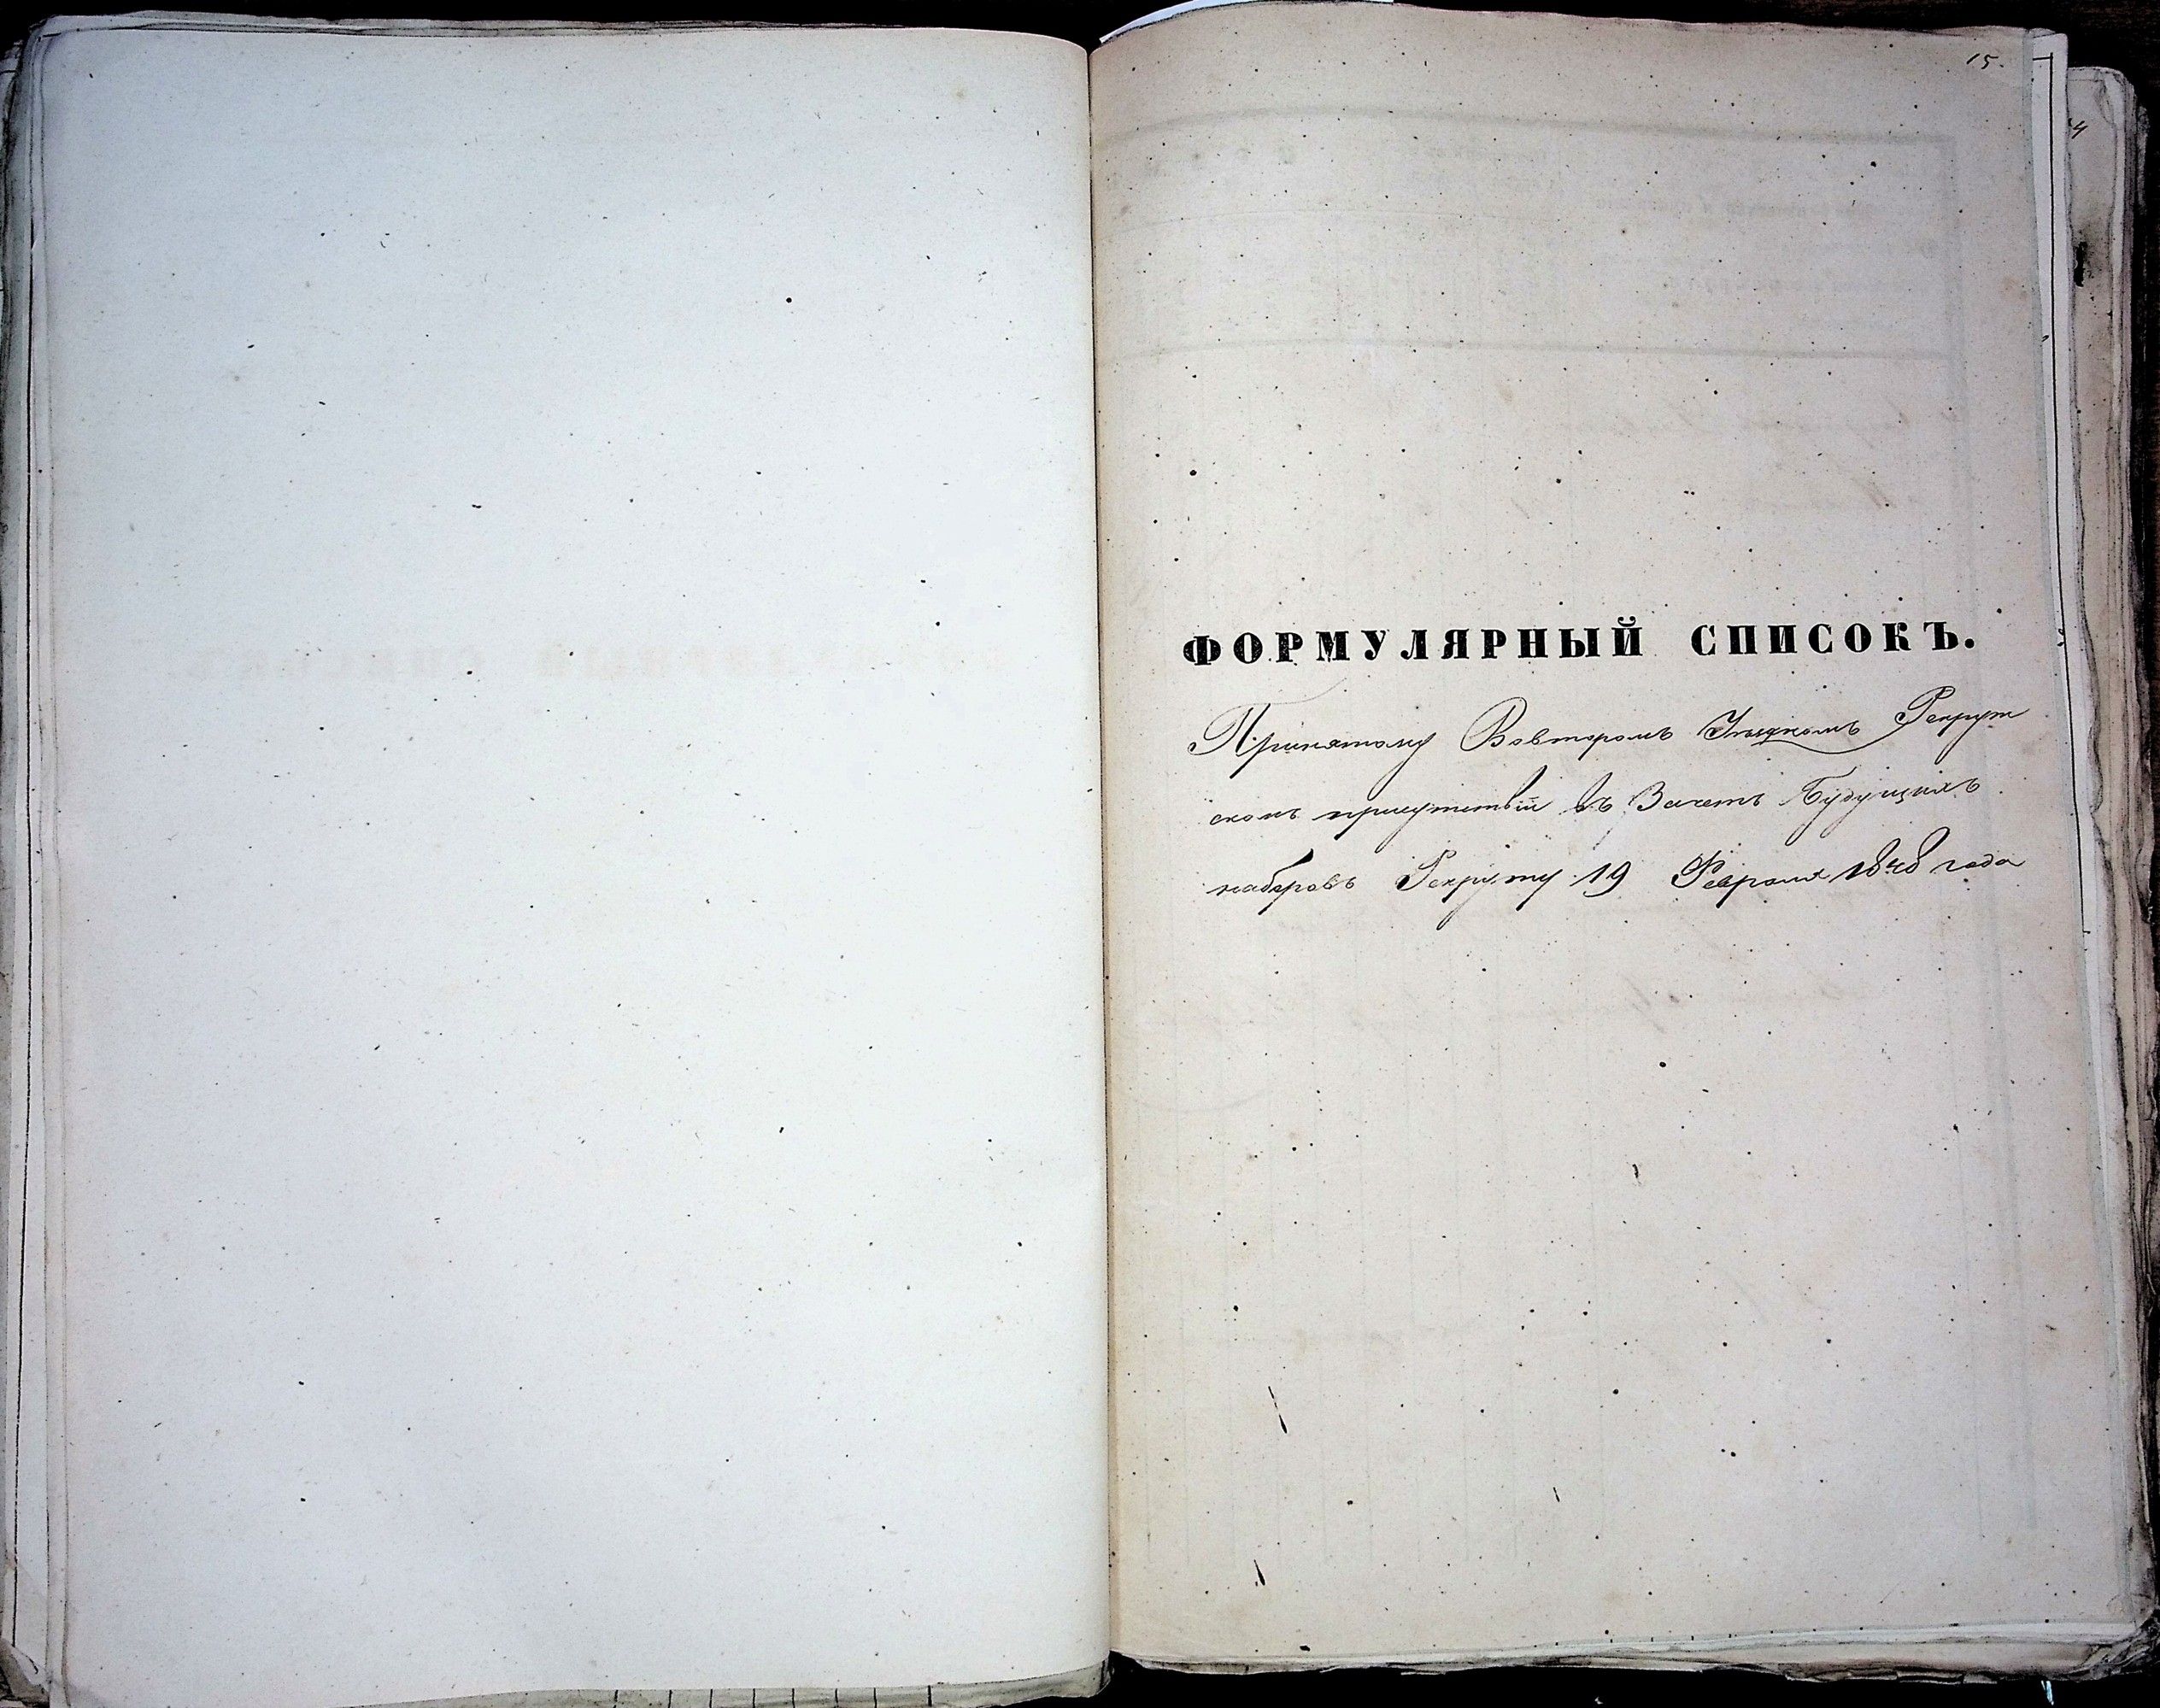 15.
ФОРМУЛЯРНЫЙ СПИСОКЪ.
Принятому Вовторомъ Уѣздномъ Рекрут
скомъ присутствіи въ Зачетъ Будущихъ
наборовъ Рекруту 19 Февраля 1848 года